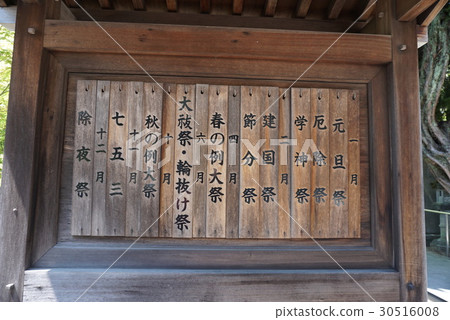 一月
元旦祭
厄除祭
学神祭
二月
建国祭
節分祭
四月
春の例大祭
六月
大祓祭・輪抜け祭
十月
秋の例大祭
十一月
七五三
十二月
除夜祭
30516008